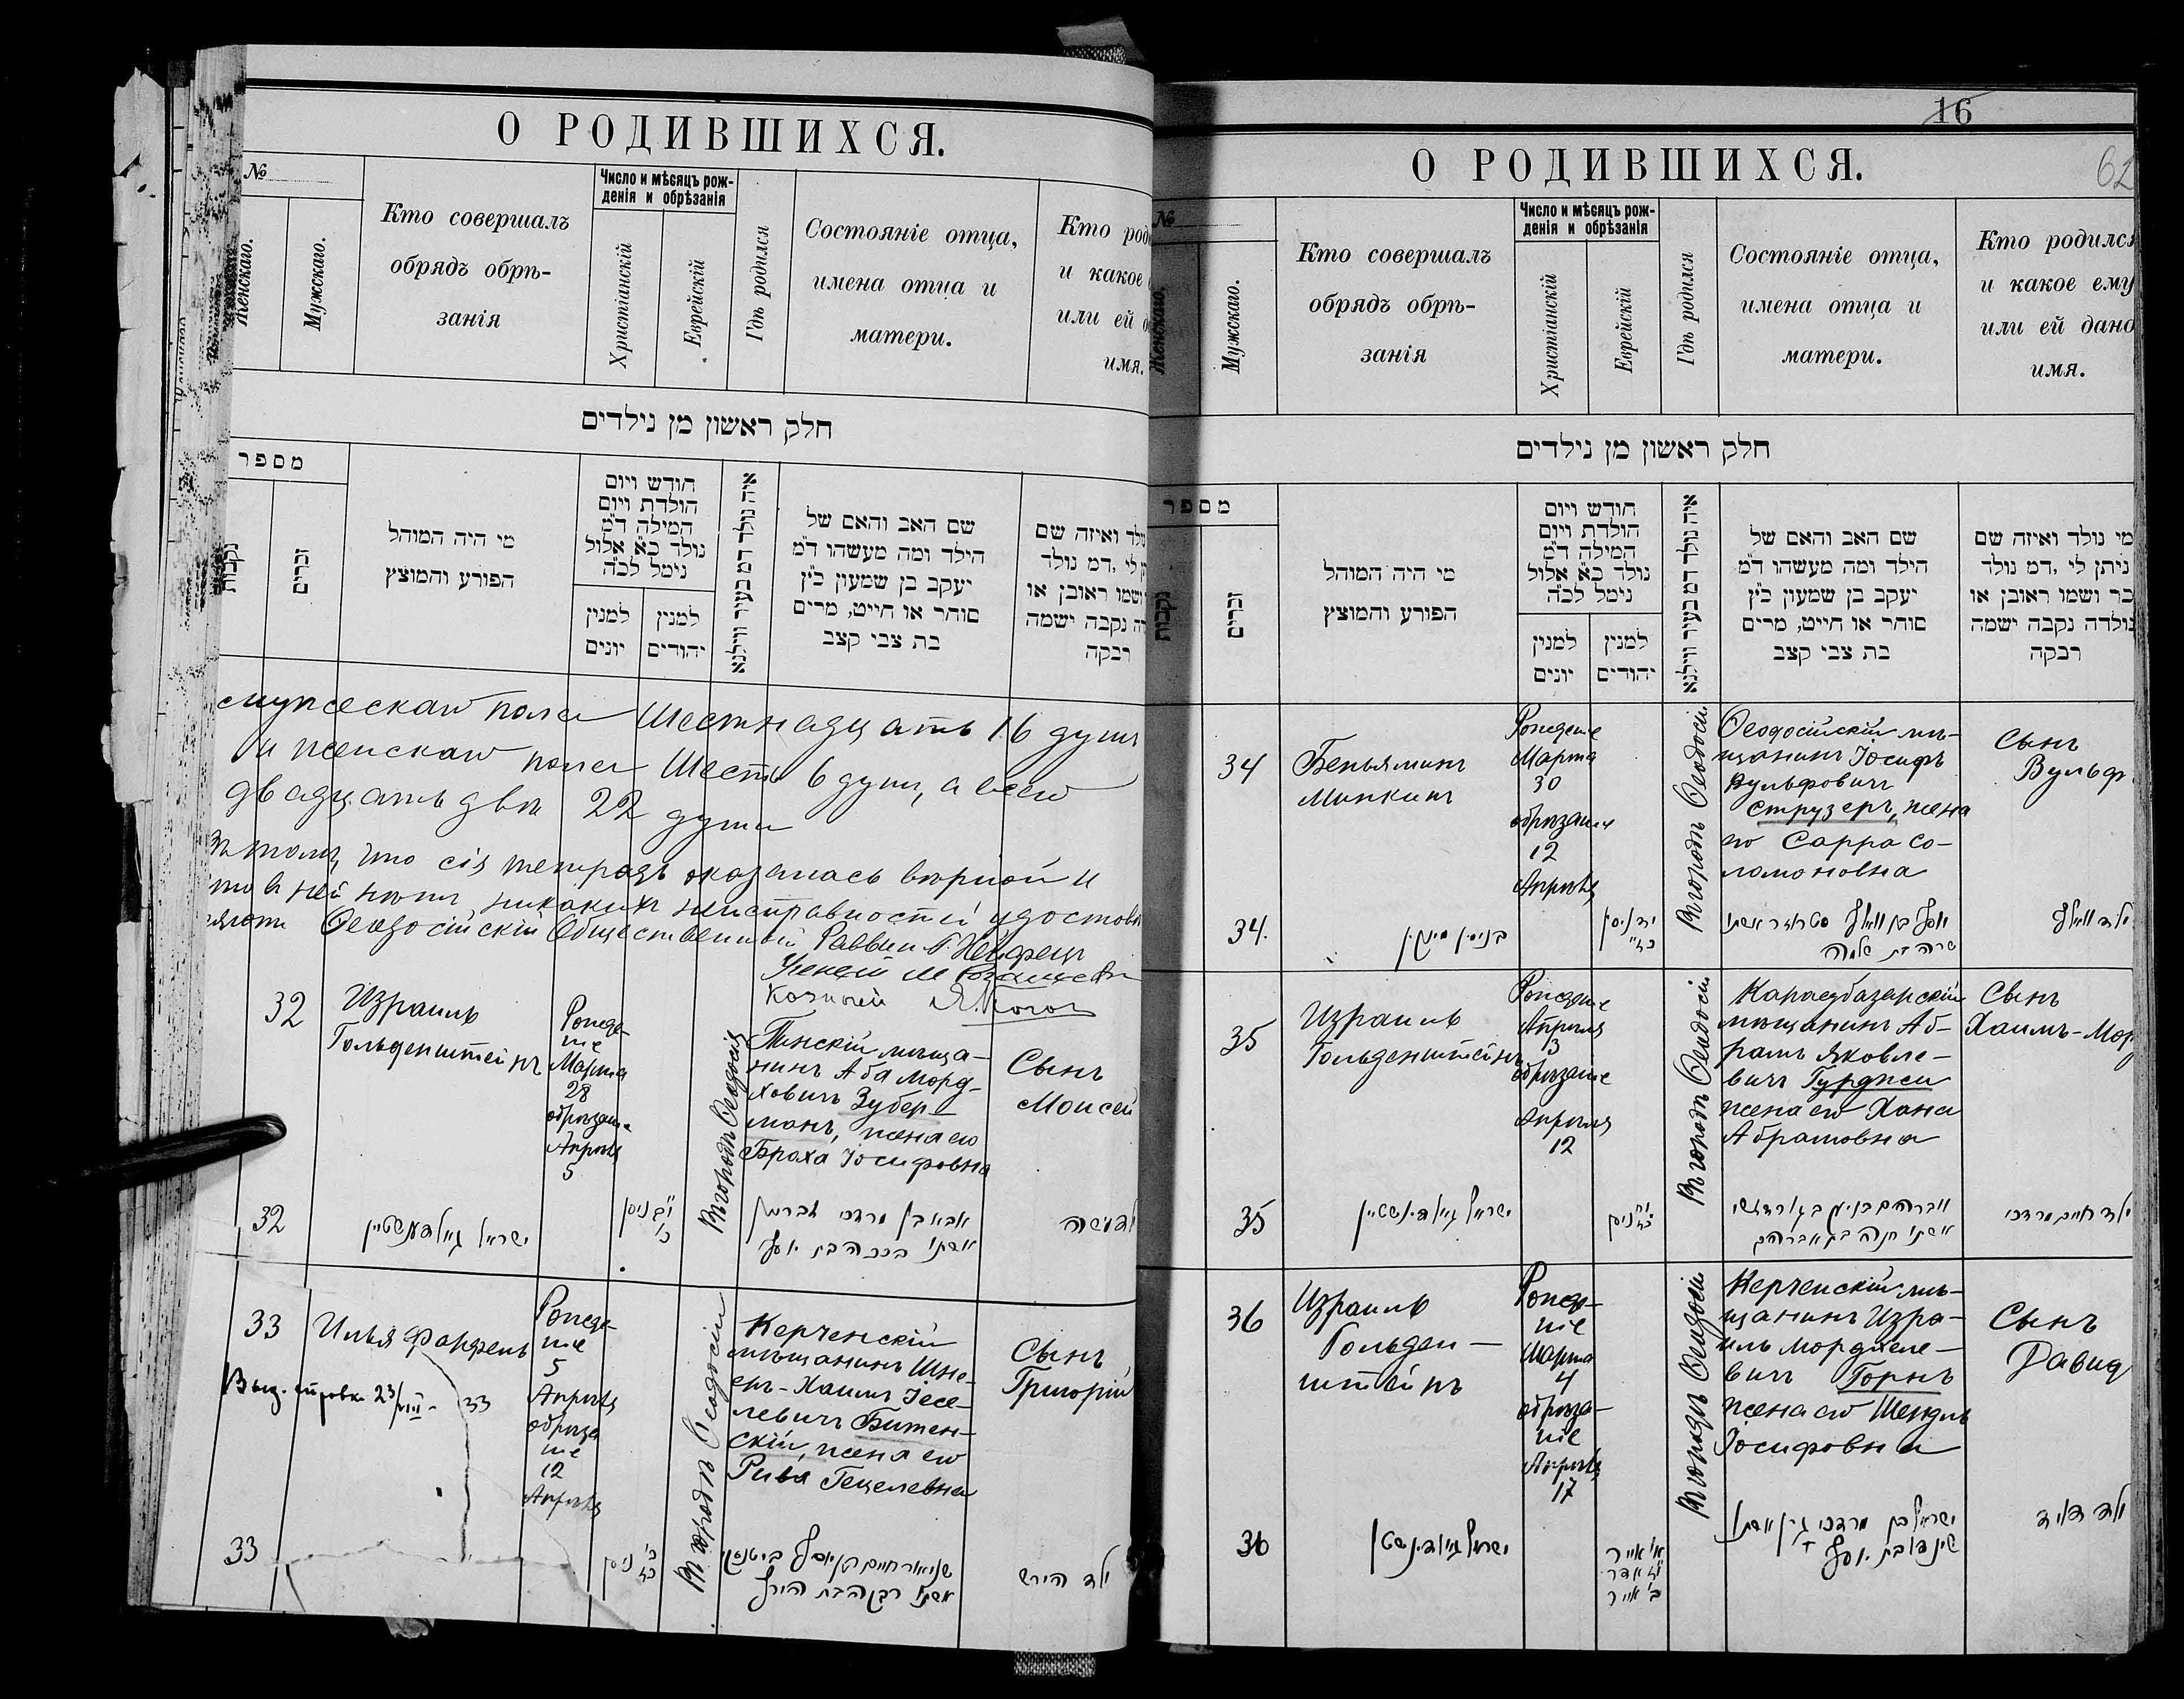 О РОДИВШИХСЯ.
№
Женскаго.
Мужскаго.
Кто совершалъ
обрядъ обрѣ-
занія
Число и мѣсяцъ рож-
денія и обрѣзанія
Христіанскій
Еврейскій
Гдѣ родился
Состояніе отца,
имена отца и
матери.
Кто род
и какое
или ей
имя.
חלק ראשון מן נילדים
מספר
נקבות
זכרים
מי היה המוהל
הפורע והמוצץ
חודש ויום
הולדת ויום
המילה ד״מ
נולד כ״א אלול
נימל לכ״ה
למנין
יונים
למנין
יהודים
איה נולד דמ בעיר ווילנא
שם האב והאם של
הילד ומה מעשהו ד״מ
יעקב בן שמעון כ״ץ
סוחר או חייט, מרים
בת צבי קצב
ולד ואיזה שם
לי, דמ נולד
ושמו ראובן או
נקבה ישמה
רבקה
мужескаго пола Шестнадцать 16 душъ
и женскаго пола Шесть 6 душъ, а всего
двадцать двѣ 22 души
въ томъ, что сія тетрадь оказалась вѣрной и
что въ ней нѣтъ никакихъ неисправностей удостовѣ
ряютъ Ѳеодосійскій Общественный Раввинъ
Ученый М.
Казначей
32
Израиль
Гольденштейнъ
Рожде-
ніе
Марта
28
обрѣзаніе
Апрѣля
5
Въ городѣ Ѳеодосіи
Пинскій мѣща-
нинъ Аба Морд-
ховичъ Зубер-
манъ, жена его
Браха Іосифовна
Сынъ
Моисей
32
ישראל גאלדענשטיין
אשתו ברכה בת יוסף
ילד משה
33
Илья Фарфель
Рожде-
ніе
5
Апрѣля
обрѣза
ніе
12
Апрѣля
Въ городѣ Ѳеодосіи
Керченскій
мѣщанинъ Шне-
еръ-Хаимъ Іосе-
левичъ Битен-
скій, жена его
Рива Гецелевна
Сынъ
Григорій
33
33
כ׳ ניסן
ילד הירש
16
62
О РОДИВШИХСЯ.
№
Женскаго.
Мужскаго.
Кто совершалъ
обрядъ обрѣ-
занія
Число и мѣсяцъ рож-
денія и обрѣзанія
Христіанскій
Еврейскій
Гдѣ родился
Состояніе отца,
имена отца и
матери.
Кто родился
и какое ему
или ей дано
имя.
חלק ראשון מן נילדים
מספר
נקבות
זכרים
מי היה המוהל
הפורע והמוצץ
חודש ויום
הולדת ויום
המילה ד״מ
נולד כ״א אלול
נימל לכ״ה
למנין
יונים
למנין
יהודים
איה נולד דמ בעיר ווילנא
שם האב והאם של
הילד ומה מעשהו ד״מ
יעקב בן שמעון כ״ץ
סוחר או חייט, מרים
בת צבי קצב
מי נולד ואיזה שם
ניתן לי, דמ נולד
בר ושמו ראובן או
נולדה נקבה ישמה
רבקה
34
Беньяминъ
Минкинъ
Рожденіе
Марта
30
обрѣзаніе
12
Апрѣля
Въ городѣ Ѳеодосіи
Ѳеодосійскій мѣ-
щанинъ Іосифъ
Вульфовичъ
Струзеръ, жена
его Сарра Со-
ломоновна
Сынъ
Вульфъ
34.
שרה בת שלמה
35
Израиль
Гольденштейнъ
Рожденіе
Апрѣля
3
обрѣзаніе
Апрѣля
12
Въ городѣ Ѳеодосіи
Карасубазарскій
мѣщанинъ Аб-
рамъ Яковле-
вичъ Гурджи
жена его Хана
Абрамовна
Сынъ
Хаимъ-Мор
35
אשתו חנה בת אברהם
ילד חיים מרדכי
36
Израиль
Гольден-
штейнъ
Рожде-
ніе
Марта
4
обрѣза-
ніе
Апрѣля
17
Въ городѣ Ѳеодосіи
Керченскій мѣ-
щанинъ Изра-
иль Мордхеле-
вичъ Горнъ
жена его Шендль
Іосифовна
Сынъ
Давидъ
36
ילד דוד